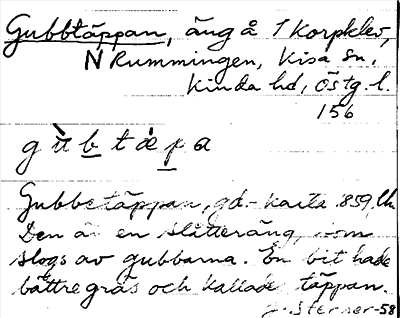 Gubbtäppan, äng å 1 Korpklev,
N Rummingen, Kisa sn,
Kinda hd, Östg. l.
156
gùbtæpa
Gubbetäppan, gd.-karta 859,
Den är en slåtteräng, som
slogs av gubbarna. En bit hade
bättre gräs och kallade täppan.
J. Sterner-58